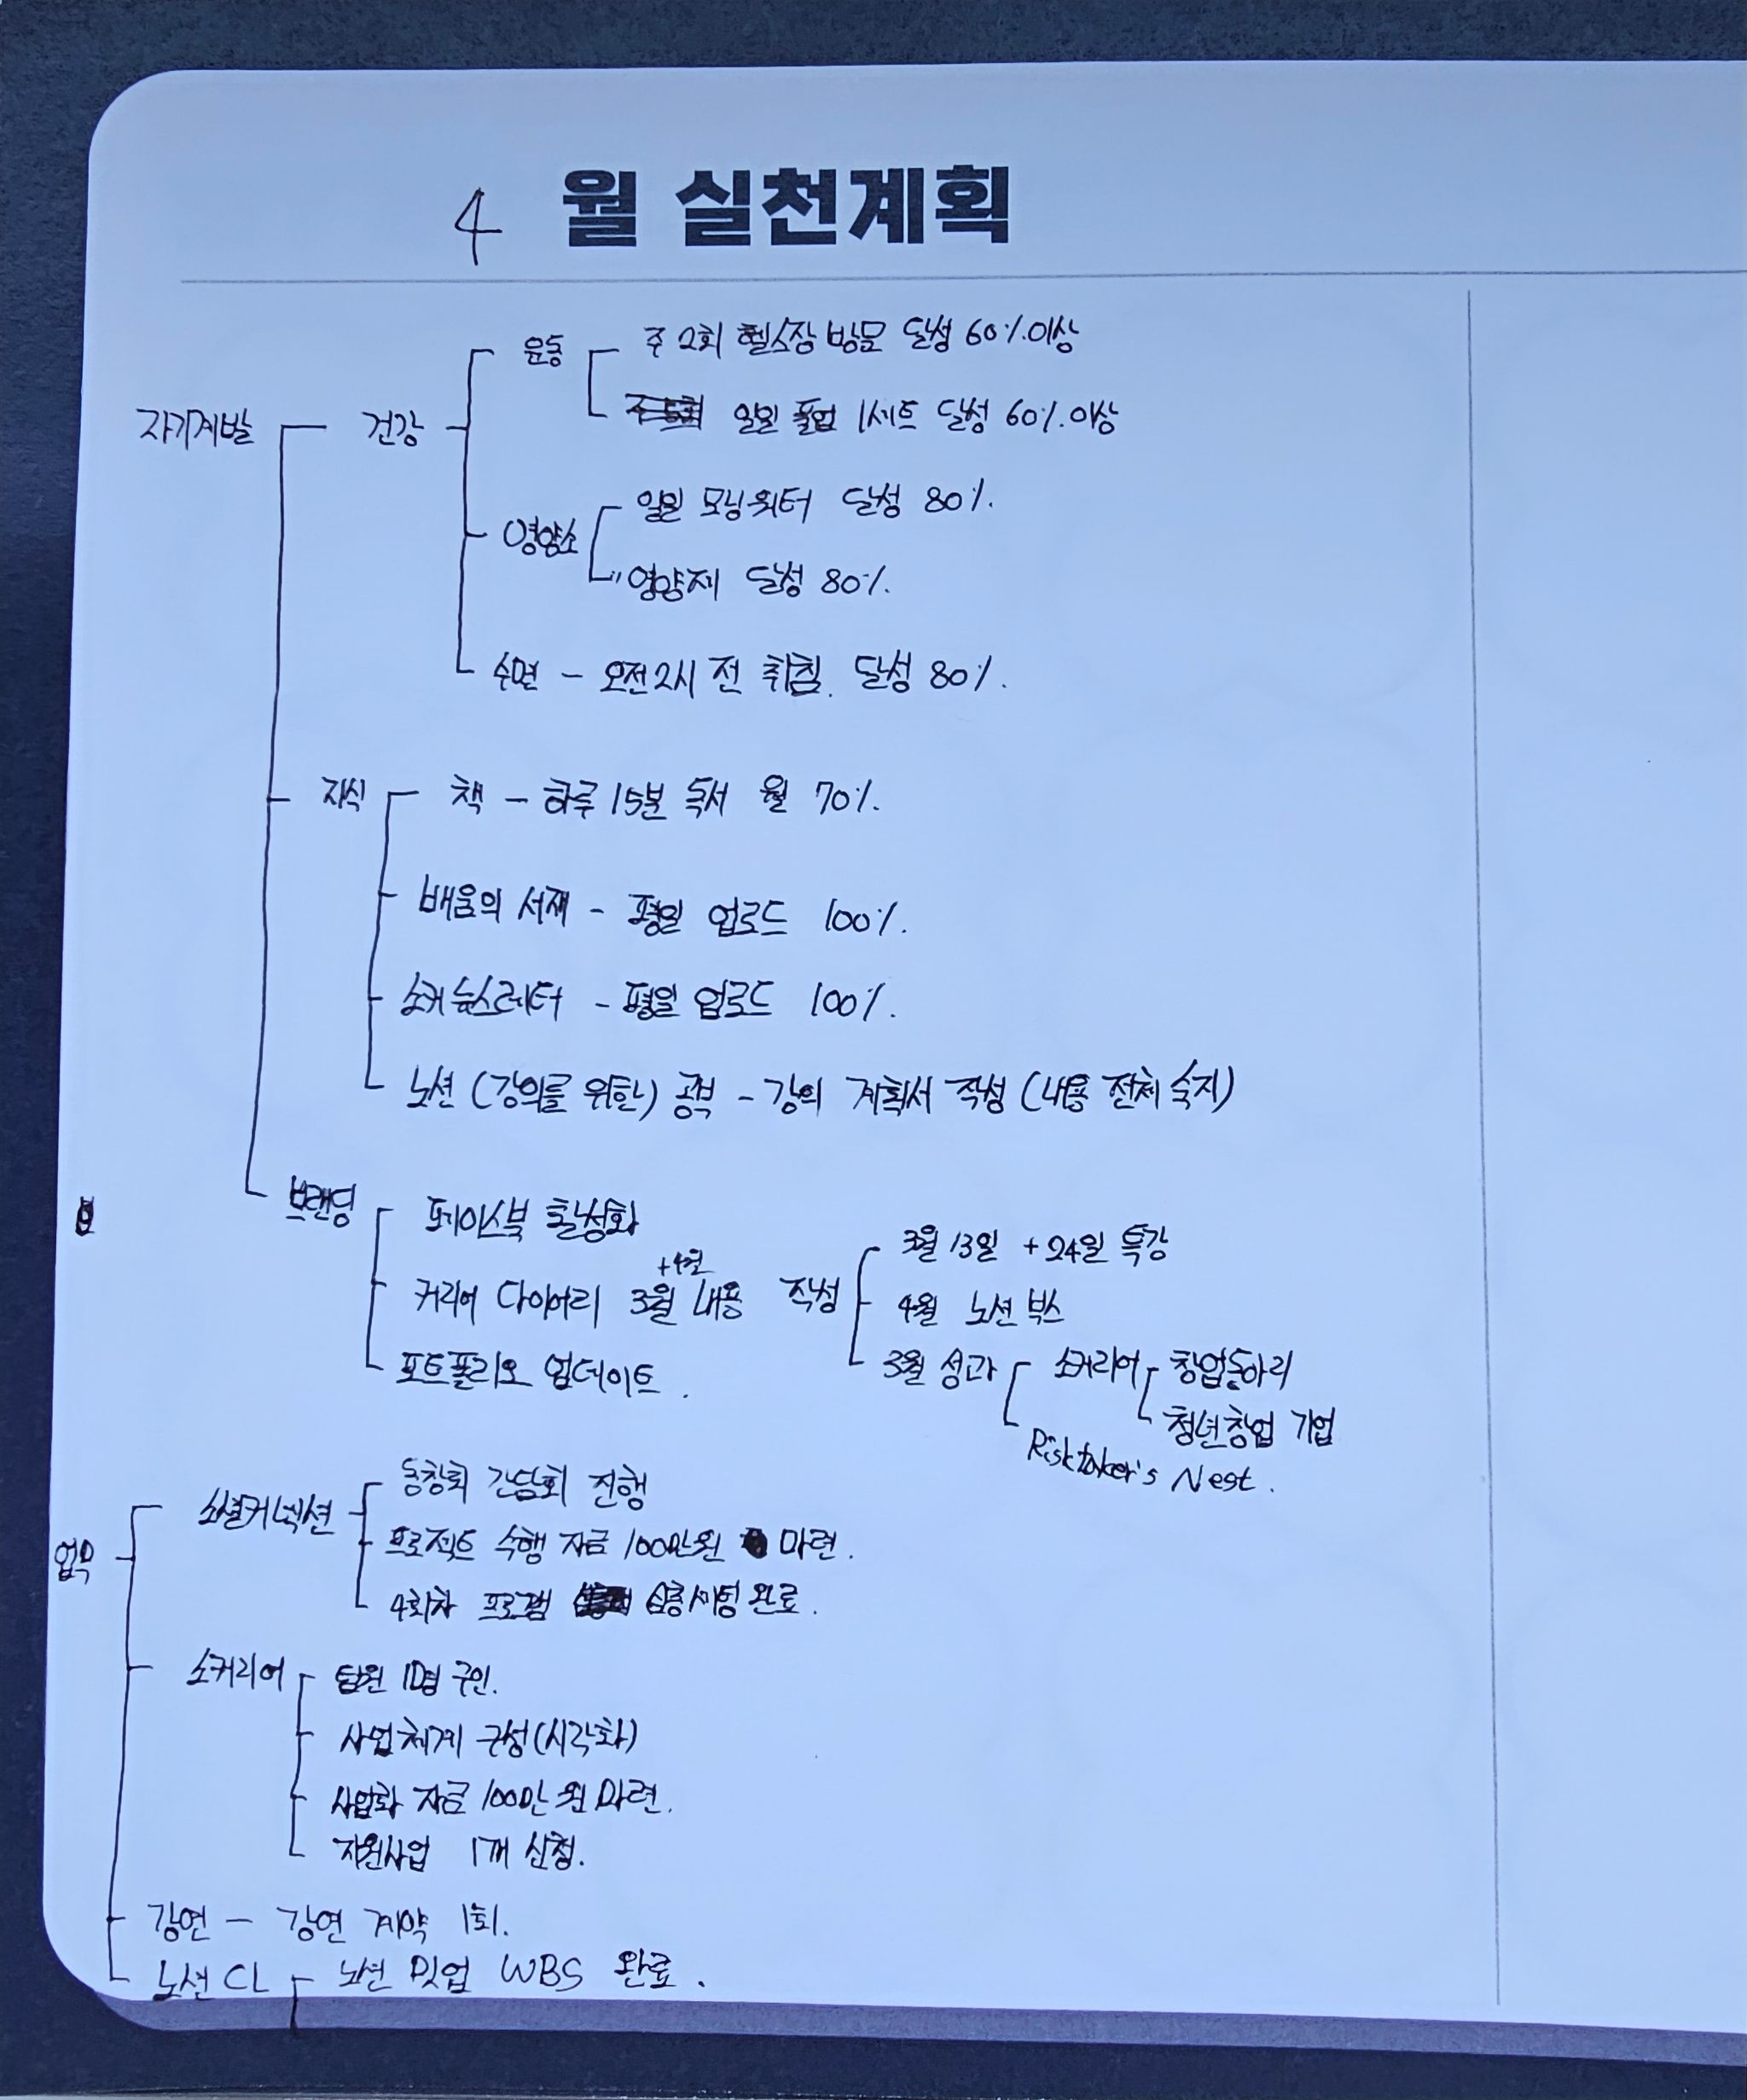 4 월 실천계획
자기계발 건강 운동 주 2회 헬스장 방문 달성 60% 이상
일일 풀업 1세트 달성 60% 이상
영양소 일일 모닝워터 달성 80%.
" 영양제 달성 80%.
수면 - 오전 2시 전 취침. 달성 80%.
지식 책 - 하루 15분 독서 월 70%.
배움의 서재 - 평일 업로드 100%.
소커 뉴스레터 - 평일 업로드 100%.
노션 (강의를 위한) 공부 - 강의 계획서 작성 (내용 전체 숙지)
브랜딩 페이스북 활성화
커리어 다이어리 3월 +4월 내용 작성 3월 13일 + 24일 특강
4월 노션 부스
3월 성과 소커리어 창업동아리
청년창업 기업
Risktaker's Nest.
포트폴리오 업데이트.
업무 소셜커넥션 동창회 간담회 진행
프로젝트 수행 자금 100만원 마련.
4회차 프로그램 심층미팅 완료.
소커리어 팀원 1명 구인.
사업체계 구성(시각화)
사업화 자금 100만 원 마련.
지원사업 1개 신청.
강연 - 강연 계약 1회.
노션 CL 노션 밋업 WBS 완료.